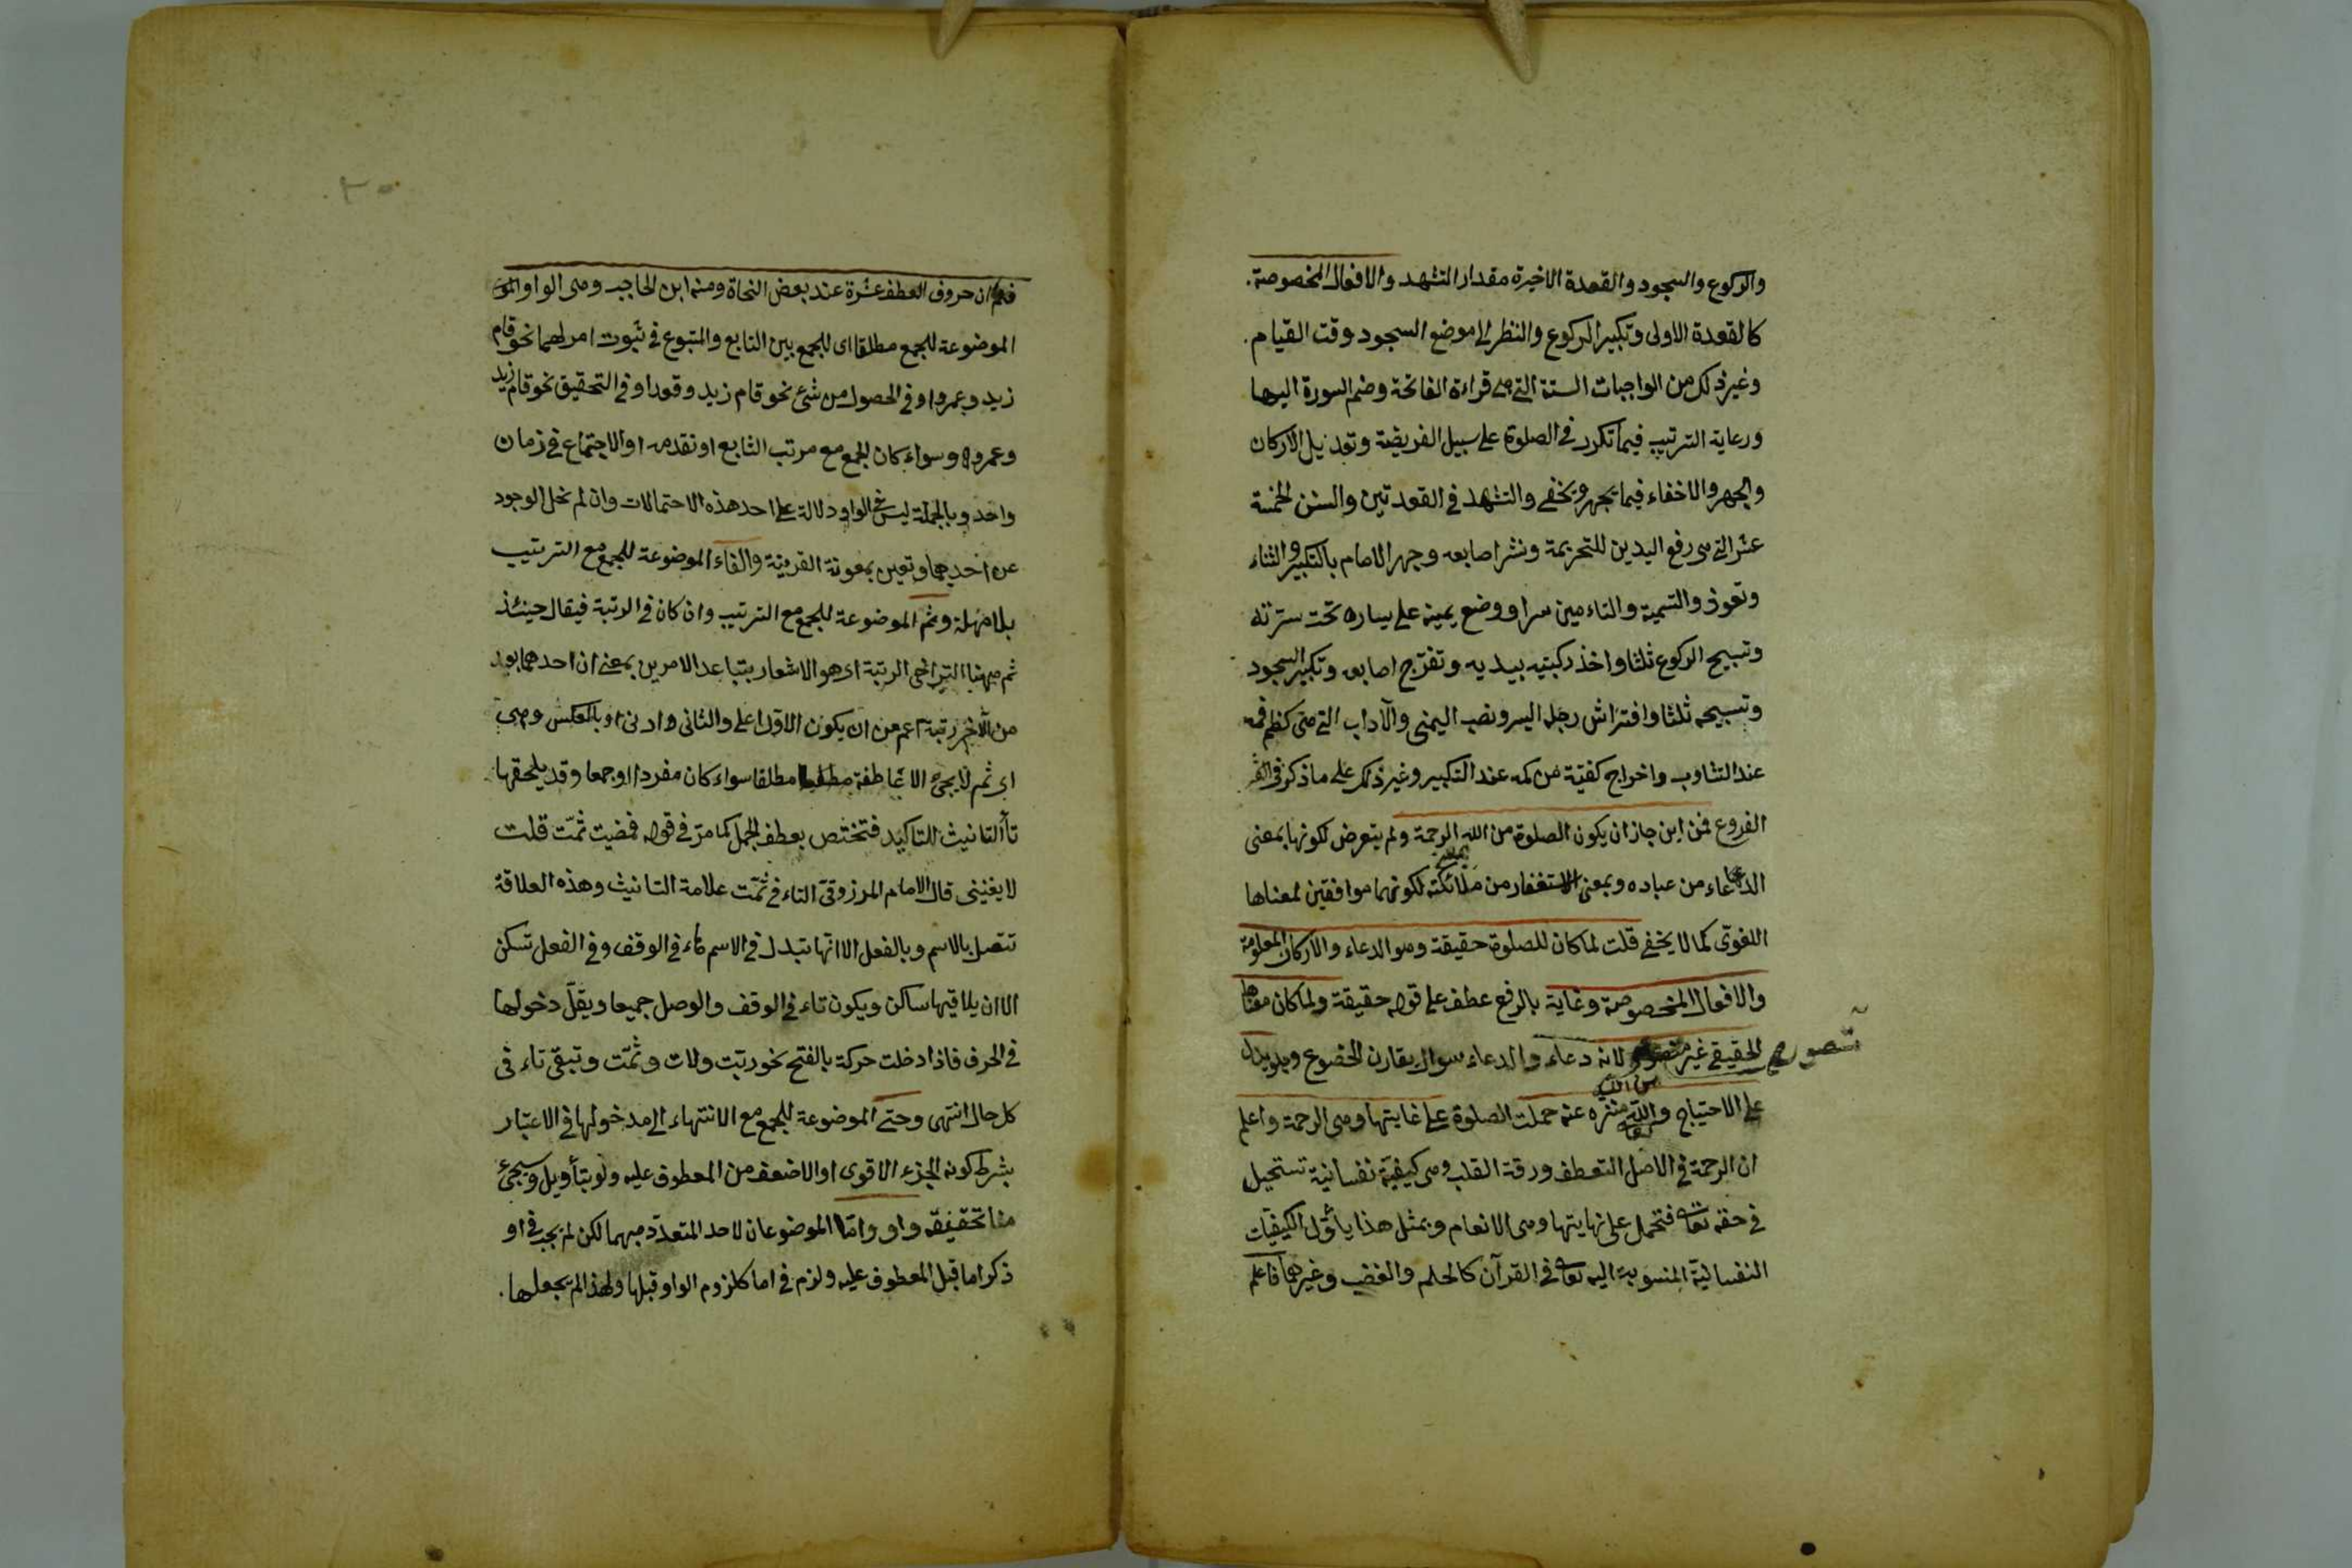 والركوع والسجود والقعدة الاخيرة مقدار التشهد والافعال المخصوصة.
كالقعدة الاولى وتكبير الركوع والنظر الى موضع السجود وقت القيام.
وغير ذلك من الواجبات الستة التى هى قراءة الفاتحة وضم السورة اليها
ورعاية الترتيب فيما تكرر فى الصلوة على سبيل الفريضة وتعديل الاركان
والجهر والاخفاء فيما يجهر ويخفى والتشهد فى القعدتين والسنن الخمسة
عشر التى هى رفع اليدين للتحريمة ونشر اصابعه وجهر الامام بالتكبير والثناء
وتعوذ والتسمية والتاءمين سرا ووضع يمينه على يساره تحت سترته
وتسبيح الركوع ثلثا واخذ ركبتيه بيديه وتفرّج اصابعه وتكبير السجود
وتسبيحه ثلثا وافتراش رجله اليسر ونصب اليمنى والآداب التى هى كظم فمه
عند التثاوب واخراج كفيّه من كمه عند التكبير وغير ذلك على ما ذكر فى
الفروع فمن اين جاز ان يكون الصلوة من الله الرحمة ولم يتعرض لكونها بمعنى
الدعاء من عباده وبمعنى الاستغفار من ملائكته لكونهما موافقين لمعناها
اللغوى كما لا يخفى قلت لما كان للصلوة حقيقة وهو الدعاء والاركان المعلومة
والافعال المخصوصة وغاية بالرفع عطف على قوله حقيقة ولما كان معناها
الحقيقى غير متصور لانه دعاء والدعاء سوال يقارن الخضوع ويدل
متصور
من الله
على الاحتياج والله تعالى منزه عنه حملت الصلوة على غايتها وهى الرحمة واعلم
ان الرحمة فى الاصل التعطف ورقة القلب وهى كيفية نفسانية تستحيل
فى حقه تعالى فتحمل على نهايتها وهى الانعام وبمثل هذا يأوّل الكيفيّات
النفسانية المنسوبة اليه تعالى فى القرآن كالحلم والغضب وغيرهما فاعلم
فاعلم ان حروف العطف عشرة عند بعض النحاة ومنه ابن الحاجب وهى الواو
الموضوعة للجمع مطلقا اى للجمع بين التابع والمتبوع فى ثبوت امر لهما نحو قام
زيد وعمرو او فى الحصول من شئ نحو قام زيد وقعد او فى التحقيق نحو قام زيد
وعمرو وسواء كان الجمع مع مرتب التابع او تقدمه او الاجتماع فى زمان
واحد وبالجملة ليس فى الواو دلالة على احد هذه الاحتمالات وان لم نخل الوجود
عن احديهما وتعين بمعونة القرينة والفاء الموضوعة للجمع مع الترتيب
بلا مهلة وثم الموضوعة للجمع مع الترتيب وان كان فى الرتبة فيقال حينئذ
ثم ههنا التراخى الرتبة اى هو الاشعار بتباعد الامرين بمعنى ان احدهما بعد
من الآخر رتبة اعم من ان يكون الاول اعلى والثانى وادنى او بالعكس وهى
اى ثم لا يجئ الا عاطفة مطلقا سواء كان مفردا او جمعا وقد يلحقها
تأ التانيث للتاكيد فتختص بعطف الجمل كما مرّ فى قوله فمضيت ثمّت قلت
لا يعنينى قال الامام المرزوقىّ التاء فى ثمّت علامة التانيث وهذه العلاقة
تتصل بالاسم وبالفعل الا انها تبدل فى الاسم هاء فى الوقف وفى الفعل تسكن
الا ان يلاقيها ساكن ويكون تاء فى الوقف والوصل جميعا ويقلّ دخولها
فى الحرف فاذا دخلت حركة بالفتح نحو ربّت ولات وثمّت وتبقى تاء فى
كل حال انتهى وحتى الموضوعة للجمع مع الانتهاء الى مدخولها فى الاعتبار
بشرط كونه الجزء الاقوى او الاضعف من المعطوف عليه ولو بتأويل وسيجئ
منا تحقيقه واو وامّا الموضوعان لاحد المتعدّد مبهما لكن لم يجب فى او
ذكر اما قبل المعطوف عليه ولزم فى اما كلزوم الواو قبلها ولهذا لم يجعلها.